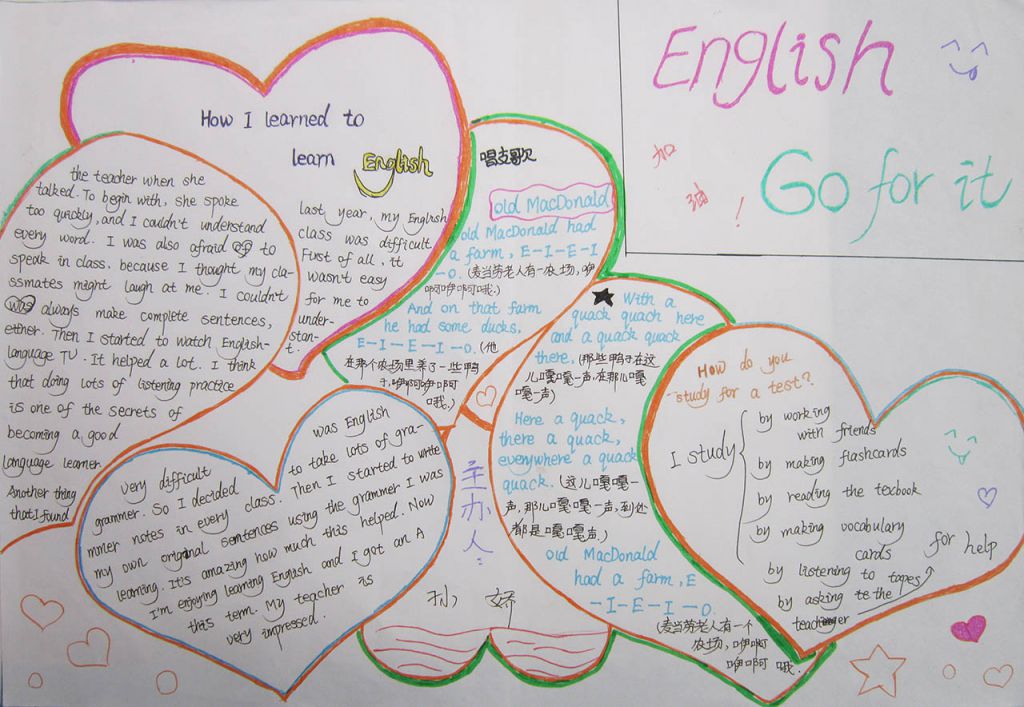 English
加
油
!
Go for it
How I learned to
learn English
last year, my English
class was difficult
First of all, it
wasn't easy
for me to
under-
stan-
t.
the teacher when she
talked. To begin with, she spoke
too quickly, and I couldn't understand
every word. I was also afraid to
speak in class, because I thought my cla-
ssmates might laugh at me. I couldn't
was always make complete sentences,
either. Then I started to watch English-
language TV. It helped a lot. I think
that doing lots of listening practice
is one of the secrets of
becoming a good
language learner.
Another thing
that I found
was English
very difficult
grammer. So I decided to take lots of gra-
mmer notes in every class. Then I started to write
my own original sentences using the grammer I was
learning. It is amazing how much this helped. Now
I'm enjoying learning English and I got an A
this term. My teacher is
very impressed.
唱支歌
old MacDonald
old MacDonald had
a farm, E-I-E-I
-O. (麦当劳老人有一农场,咿
呀咿呀哦.)
And on that farm
he had some ducks,
E-I-E-I-O. (他
在那个农场里养了一些鸭
子,咿呀咿呀
哦.)
With a
quack quach here
and a quack quack
there, (那些鸭子在这
儿嘎嘎一声,在那儿嘎
嘎一声)
Here a quack,
there a quack,
everywhere a quack
quack. (这儿嘎嘎一
声,那儿嘎嘎一声,到处
都是嘎嘎声.)
old MacDonald
had a farm, E
-I-E-I-O.
(麦当劳老人有一个
农场,咿呀
咿呀 哦.
主
办
人:
孙 娇
How do you
study for a test?
I study
by working
with friends
by making flashcards
by reading the texbook
by making vocabulary
cards
by listening to tapes
by asking te the for help
teacher